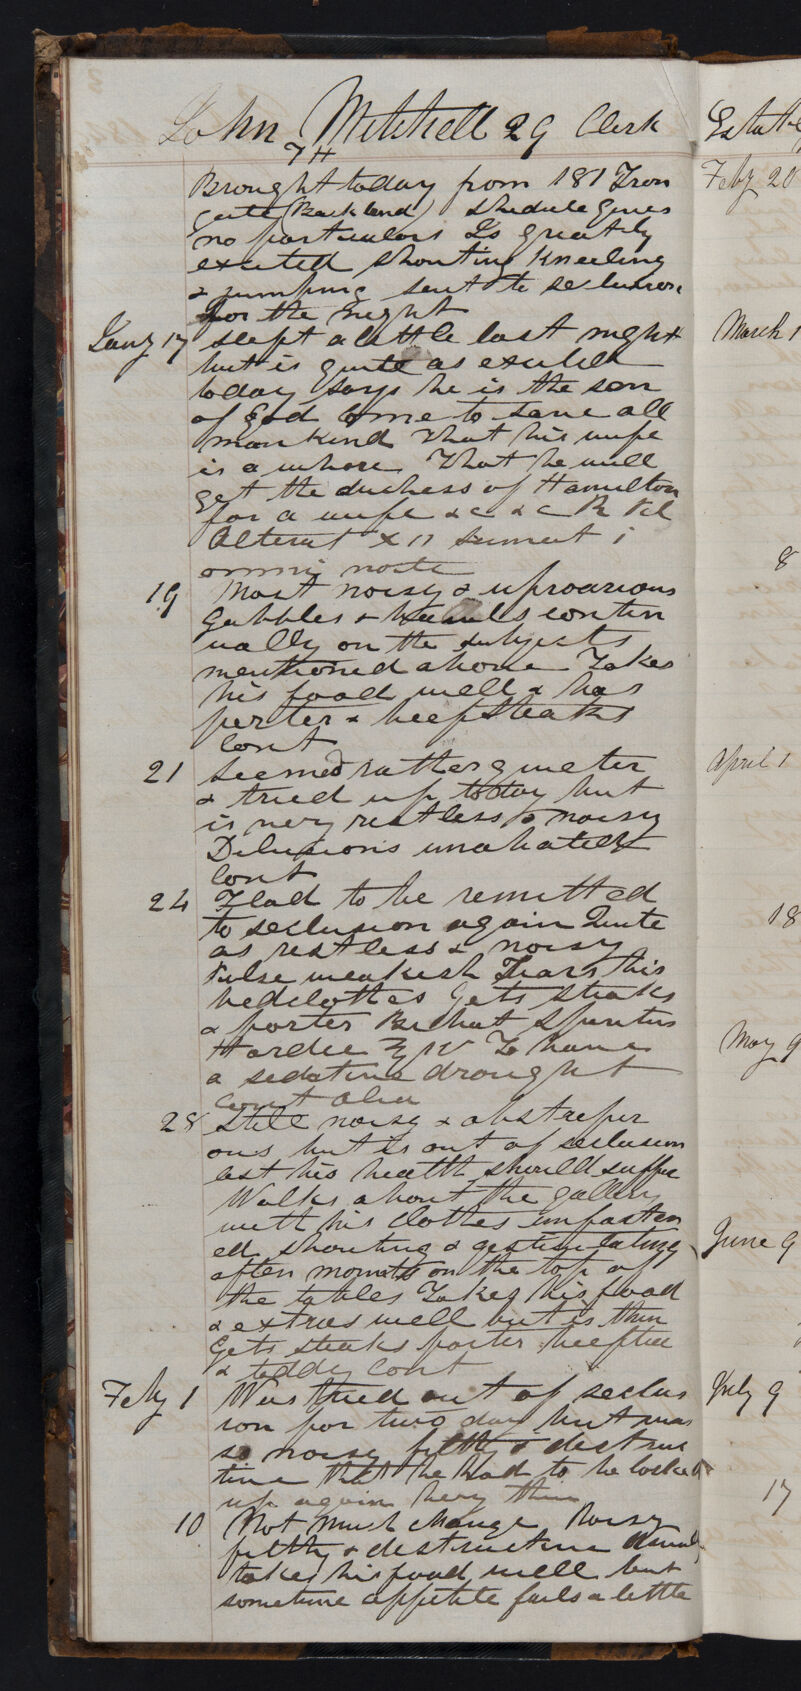 John Mitchell 29 Clerk
74
Brought today from 181 Iron
gate (Backland) Shedule gives
no particulars Is greatily
excited shouting kneeling
& jumping sent to seclusion
for the night
Jany 17 slept a little last night
but is quite as excited
today says he is the son
of God come to save all
mankind That his wife
is a whore That he will
get the duchess of Hamilton
for a wife &c &c R Pil
Alterat × ii sumat i
omni nocte
19 Most noisy & uproarious
Gabbles & contin
ually on the subjects
mentioned above Takes
his food well & has
porter & beefsteaks
Cont
21 Seemed rather quieter
& tried up today but
is very restless & noisy
Delusions unabated
Cont
24 Had to be remitted
to seclusion again Quite
as restless & noisy
Pulse weakish Tears his
bedclothes Gets steaks
& porter Bibat Spiritus
Hordei ℥ iv To have
a sedative drought
cont alia
28 Still noisy & abstreper
ous but is out of seclusion
lest his health should suffer
Walks about the gallery
with his clothes unfasten
ed shouting & gesticulating
often mounts on the top of
the tables Takes his food
& extras well but is thin
Gets steaks porter beeftea
& toddy Cont
Feby 1 Was tried out of seclus
ion for two days but was
so noisy filthy & destruc
tive that he had to be locked
up again Very thin
10 Not much change Noisy
filthy & destructive Usually
takes his food well but
sometime appetite fails a little
Feby 20
March 1
8
April 1
18
May 9
June 9
July 9
17